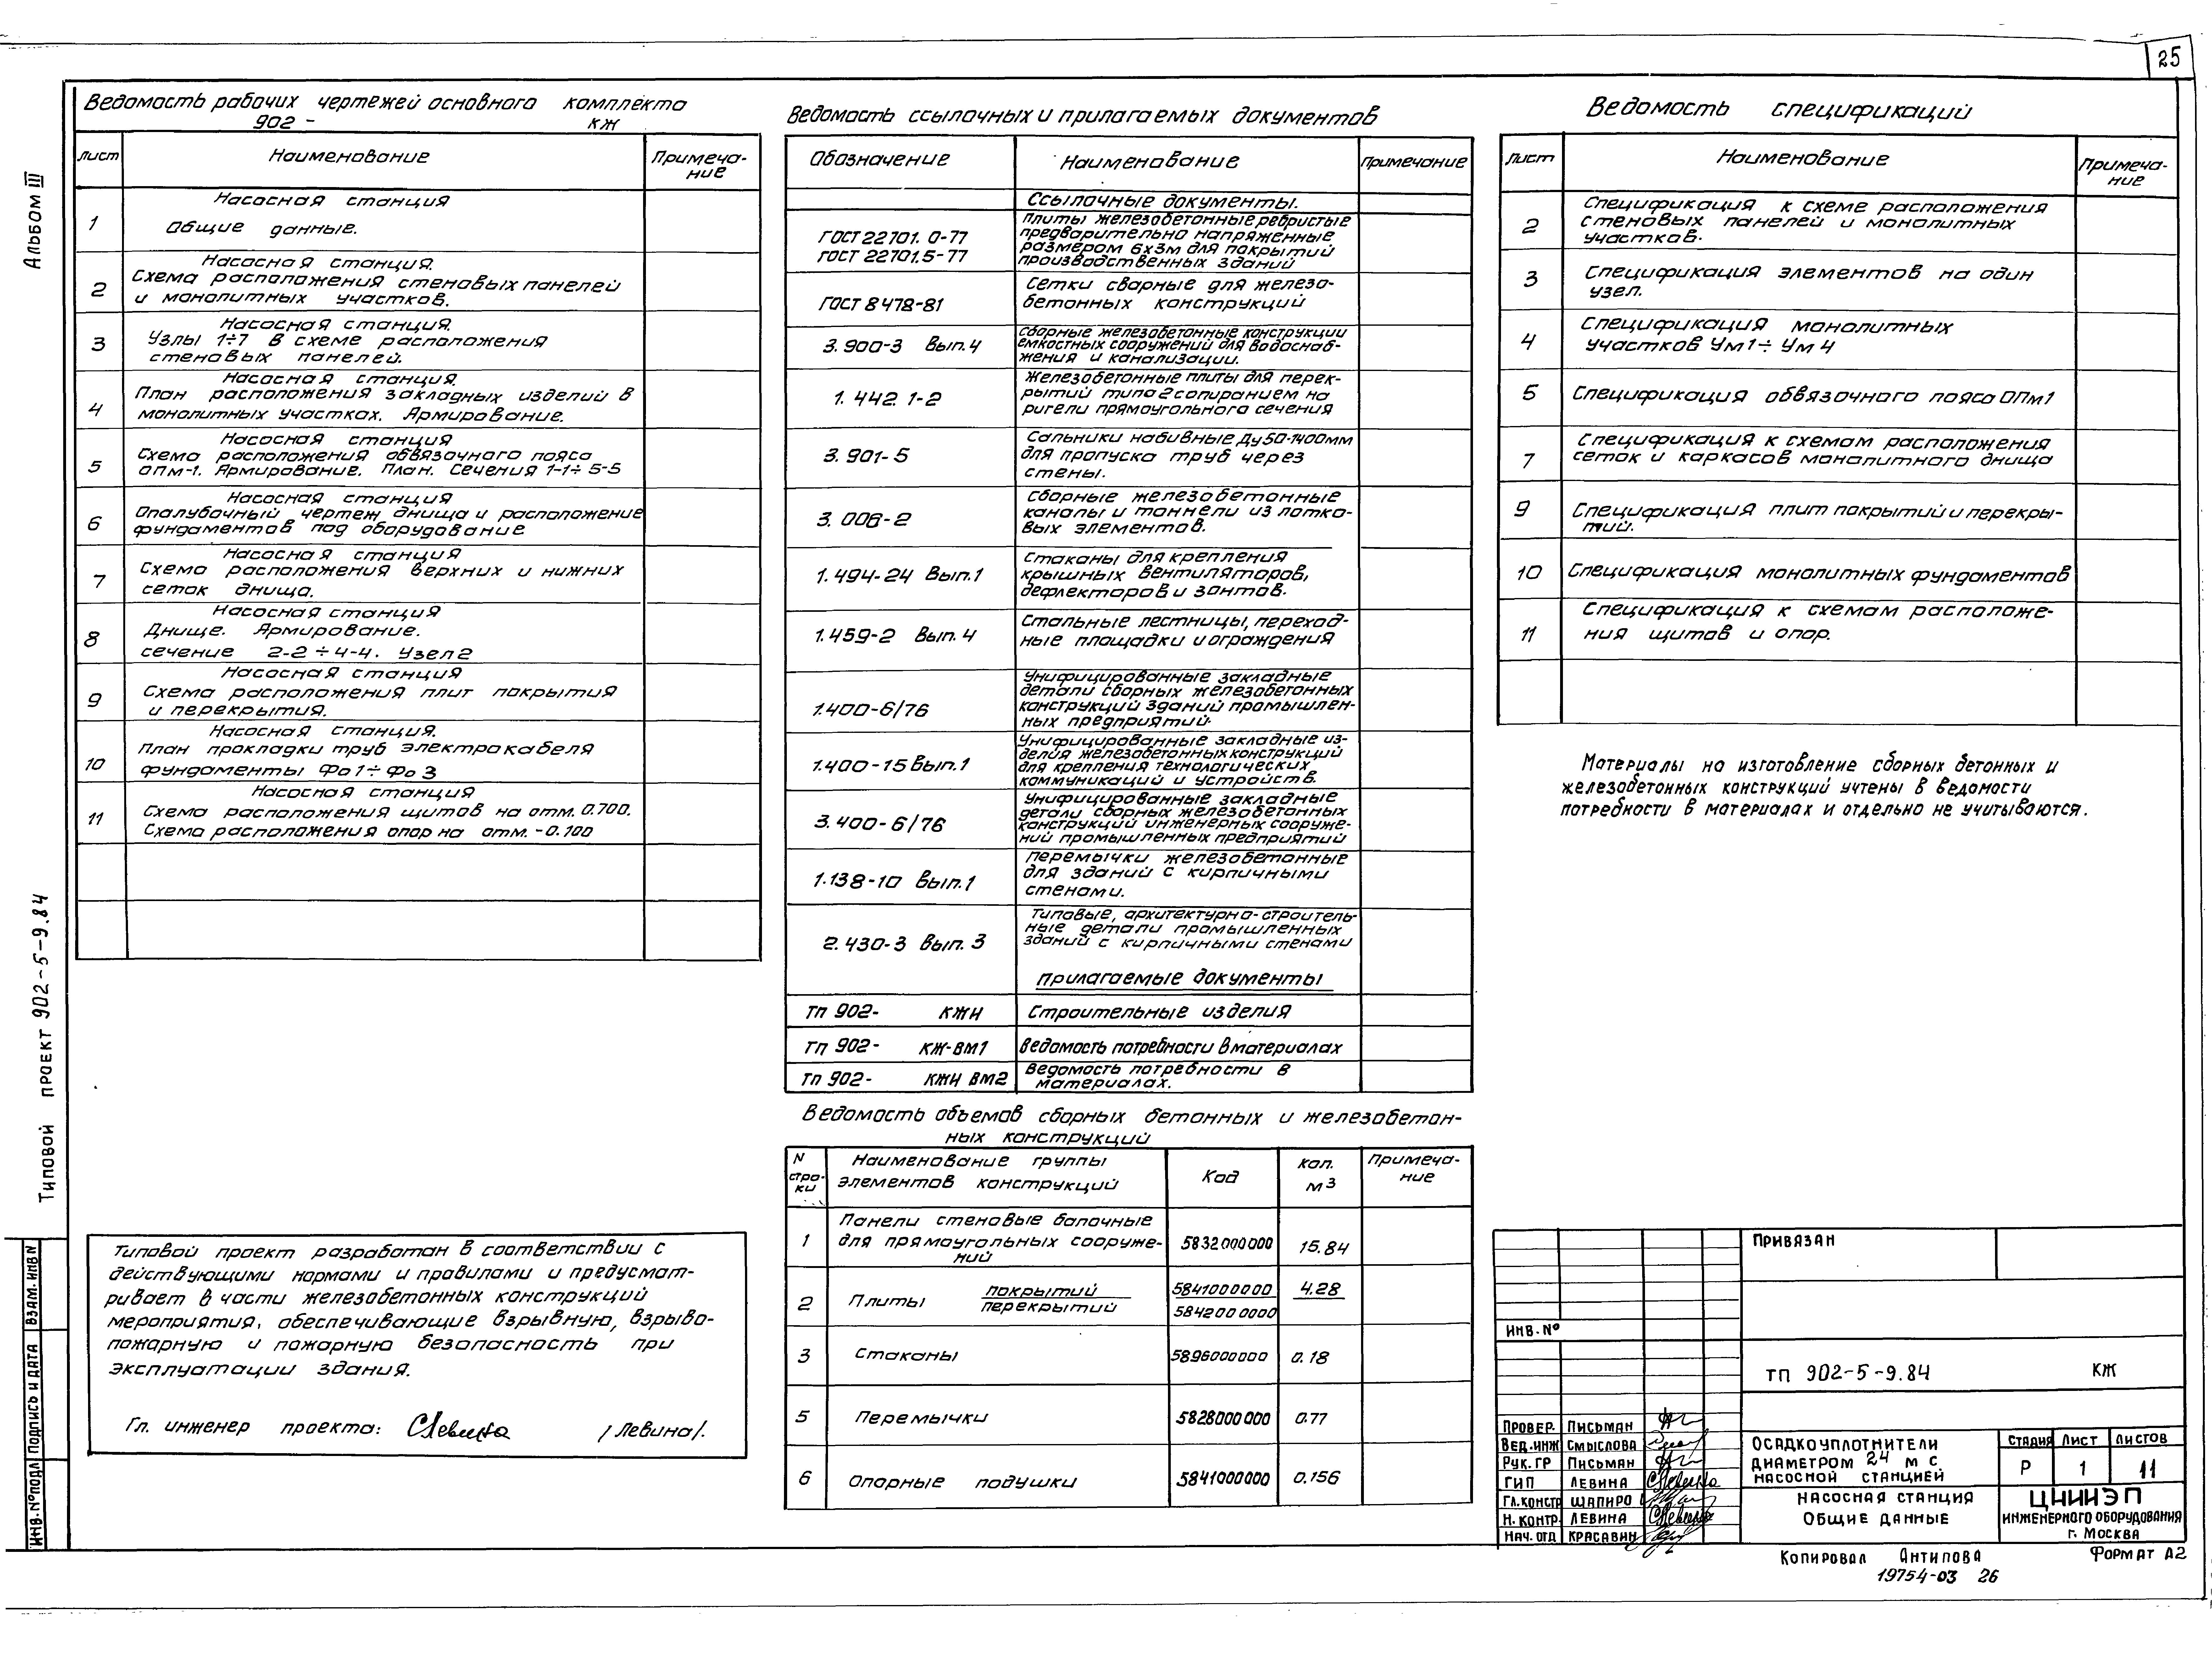 25
Альбом III
Типовой проект 902-5-9.84
Ведомость рабочих чертежей основного комплекта
902 - КЖ
Лист Наименование Примеча-
ние
Насосная станция
1 Общие данные.
Насосная станция.
2 Схема расположения стеновых панелей
и монолитных участков.
Насосная станция.
3 Узлы 1÷7 в схеме расположения
стеновых панелей.
Насосная станция.
4 План расположения закладных изделий в
монолитных участках. Армирование.
Насосная станция
5 Схема расположения обвязочного пояса
ОПм-1. Армирование. План. Сечения 1-1÷5-5
Насосная станция
6 Опалубочный чертеж днища и расположение
фундаментов под оборудование
Насосная станция
7 Схема расположения верхних и нижних
сеток днища.
Насосная станция
8 Днище. Армирование.
сечение 2-2÷4-4. Узел 2
Насосная станция
9 Схема расположения плит покрытия
и перекрытия.
Насосная станция.
10 План прокладки труб электрокабеля
фундаменты Фо1÷Фо3
Насосная станция
11 Схема расположения щитов на отм. 0.700.
Схема расположения опор на отм. -0.100
Типовой проект разработан в соответствии с
действующими нормами и правилами и предусмат-
ривает в части железобетонных конструкций
мероприятия, обеспечивающие взрывную, взрыво-
пожарную и пожарную безопасность при
эксплуатации здания.
Гл. инженер проекта: /Левина/.
Ведомость ссылочных и прилагаемых документов
Обозначение Наименование Примечание
Ссылочные документы.
ГОСТ 22701.0-77
ГОСТ 22701.5-77
Плиты железобетонные ребристые
предварительно напряженные
размером 6х3м для покрытий
производственных зданий
ГОСТ 8478-81 Сетки сварные для железо-
бетонных конструкций
3.900-3 Вып.4 Сборные железобетонные конструкции
емкостных сооружений для водоснаб-
жения и канализации.
1.442.1-2 Железобетонные плиты для перек-
рытий типа 2 с опиранием на
ригели прямоугольного сечения
3.901-5 Сальники набивные Ду50-1400мм
для пропуска труб через
стены.
3.006-2 Сборные железобетонные
каналы и тоннели из лотко-
вых элементов.
1.494-24 Вып.1 Стаканы для крепления
крышных вентиляторов,
дефлекторов и зонтов.
1.459-2 Вып.4 Стальные лестницы, переход-
ные площадки и ограждения
1.400-6/76 Унифицированные закладные
детали сборных железобетонных
конструкций зданий промышлен-
ных предприятий.
1.400-15 Вып.1 Унифицированные закладные из-
делия железобетонных конструкций
для крепления технологических
коммуникаций и устройств.
3.400-6/76 Унифицированные закладные
детали сборных железобетонных
конструкций инженерных сооруже-
ний промышленных предприятий
1.138-10 Вып.1 Перемычки железобетонные
для зданий с кирпичными
стенами.
2.430-3 Вып.3 Типовые, архитектурно-строитель-
ные детали промышленных
зданий с кирпичными стенами
Прилагаемые документы
ТП 902- КЖИ Строительные изделия
ТП 902- КЖ-ВМ1 Ведомость потребности в материалах
ТП 902- КЖИ ВМ2 Ведомость потребности в
материалах.
Ведомость объемов сборных бетонных и железобетон-
ных конструкций
N
стро-
ки
Наименование группы
элементов конструкций
Код
Кол.
м3
Примеча-
ние
1 Панели стеновые балочные
для прямоугольных сооруже-
ний
5832000000 15.84
2 Плиты покрытий 5841000000 4.28
перекрытий 5842000000
3 Стаканы 5896000000 0.18
5 Перемычки 5828000000 0.77
6 Опорные подушки 5841000000 0.156
Ведомость спецификаций
Лист Наименование Примеча-
ние
2 Спецификация к схеме расположения
стеновых панелей и монолитных
участков.
3 Спецификация элементов на один
узел.
4 Спецификация монолитных
участков Ум1÷Ум4
5 Спецификация обвязочного пояса ОПм1
7 Спецификация к схемам расположения
сеток и каркасов монолитного днища
9 Спецификация плит покрытий и перекры-
тий.
10 Спецификация монолитных фундаментов
11 Спецификация к схемам расположе-
ния щитов и опор.
Материалы на изготовление сборных бетонных и
железобетонных конструкций учтены в ведомости
потребности в материалах и отдельно не учитываются.
Привязан
Инв.№
ТП 902-5-9.84 КЖ
Провер. Письман
Вед.инж Смыслова
Рук.гр Письман
ГИП Левина
Гл.констр Шапиро
Н.контр. Левина
Нач.отд Красавин
Осадкоуплотнители
диаметром 24 м с
насосной станцией
Стадия Лист Листов
Р 1 11
Насосная станция
Общие данные
ЦНИИЭП
инженерного оборудования
г. Москва
Копировал Антипова
Формат А2
19754-03 26
Инв.№подл Подпись и дата Взам.инв N